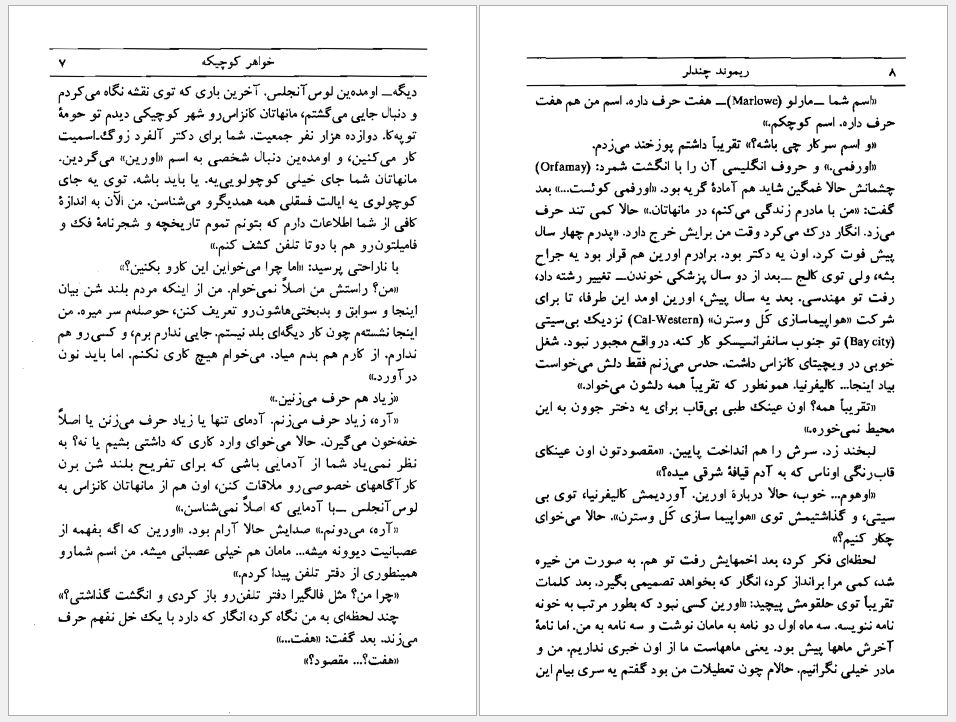 خواهر کوچیکه ۷
دیگه_ اومده‌ین لوس‌آنجلس. آخرین باری که توی نقشه نگاه می‌کردم
و دنبال جایی می‌گشتم، مانهاتان کانزاس‌رو شهر کوچیکی دیدم تو حومهٔ
توپه‌کا. دوازده هزار نفر جمعیت. شما برای دکتر آلفرد زوگ‌اسمیت
کار می‌کنین، و اومده‌ین دنبال شخصی به اسم «اورین» می‌گردین.
مانهاتان شما جای خیلی کوچولویی‌یه. یا باید باشه. توی یه جای
کوچولوی یه ایالت فسقلی همه همدیگرو می‌شناسن. من الآن به اندازهٔ
کافی از شما اطلاعات دارم که بتونم تموم تاریخچه و شجرنامهٔ فک و
فامیلتون‌رو هم با دوتا تلفن کشف کنم.»
با ناراحتی پرسید: «اما چرا می‌خواین این کارو بکنین؟»
«من؟ راستش من اصلاً نمی‌خوام. من از اینکه مردم بلند شن بیان
اینجا و سوابق و بدبختی‌هاشون‌رو تعریف کنن، حوصله‌م سر میره. من
اینجا نشسته‌م چون کار دیگه‌ای بلد نیستم. جایی ندارم برم، و کسی‌رو هم
ندارم. از کارم هم بدم میاد. می‌خوام هیچ کاری نکنم. اما باید نون
درآورد.»
«زیاد هم حرف می‌زنین.»
«آره، زیاد حرف می‌زنم. آدمای تنها یا زیاد حرف می‌زنن یا اصلاً
خفه‌خون می‌گیرن. حالا می‌خوای وارد کاری که داشتی بشیم یا نه؟ به
نظر نمی‌یاد شما از آدمایی باشی که برای تفریح بلند شن برن
کارآگاههای خصوصی‌رو ملاقات کنن، اون هم از مانهاتان کانزاس به
لوس آنجلس _با آدمایی که اصلاً نمی‌شناسن.»
«آره، می‌دونم.» صدایش حالا آرام بود. «اورین که اگه بفهمه از
عصبانیت دیوونه میشه... مامان هم خیلی عصبانی میشه. من اسم شمارو
همینطوری از دفتر تلفن پیدا کردم.»
«چرا من؟ مثل فالگیرا دفتر تلفن‌رو باز کردی و انگشت گذاشتی؟»
چند لحظه‌ای به من نگاه کرد، انگار که دارد با یک خل نفهم حرف
می‌زند. بعد گفت: «هفت...»
«هفت؟... مقصود؟»
۸ ریموند چندلر
«اسم شما _مارلو (Marlowe)_ هفت حرف داره. اسم من هم هفت
حرف داره. اسم کوچکم.»
«و اسم سرکار چی باشه؟» تقریباً داشتم پوزخند می‌زدم.
«اورفمی.» و حروف انگلیسی آن را با انگشت شمرد: (Orfamay)
چشمانش حالا غمگین شاید هم آمادهٔ گریه بود. «اورفمی کوئست...» بعد
گفت: «من با مادرم زندگی می‌کنم، در مانهاتان.» حالا کمی تند حرف
می‌زد. انگار درک می‌کرد وقت من برایش خرج دارد. «پدرم چهار سال
پیش فوت کرد. اون یه دکتر بود. برادرم اورین هم قرار بود یه جراح
بشه، ولی توی کالج _بعد از دو سال پزشکی خوندن_ تغییر رشته داد،
رفت تو مهندسی. بعد یه سال پیش، اورین اومد این طرفا، تا برای
شرکت «هواپیماسازی کَل وسترن» (Cal-Western) نزدیک بی‌سیتی
(Bay city) تو جنوب سانفرانسیسکو کار کنه. درواقع مجبور نبود. شغل
خوبی در ویچیتای کانزاس داشت. حدس می‌زنم فقط دلش می‌خواست
بیاد اینجا... کالیفرنیا. همونطور که تقریباً همه دلشون می‌خواد.»
«تقریباً همه؟ اون عینک طبی بی‌قاب برای یه دختر جوون به این
محیط نمی‌خوره.»
لبخند زد. سرش را هم انداخت پایین. «مقصودتون اون عینکای
قاب‌رنگی اوناس که به آدم قیافهٔ شرقی میده؟»
«اوهوم... خوب، حالا دربارهٔ اورین. آوردیمش کالیفرنیا، توی بی
سیتی، و گذاشتیمش توی «هواپیما سازی کَل وسترن». حالا می‌خوای
چکار کنیم؟»
لحظه‌ای فکر کرد، بعد اخمهایش رفت تو هم. به صورت من خیره
شد، کمی مرا برانداز کرد، انگار که بخواهد تصمیمی بگیرد. بعد کلمات
تقریباً توی حلقومش پیچید: «اورین کسی نبود که بطور مرتب به خونه
نامه ننویسه. سه ماه اول دو نامه به مامان نوشت و سه نامه به من. اما نامهٔ
آخرش ماهها پیش بود. یعنی ماههاست ما از اون خبری نداریم. من و
مادر خیلی نگرانیم. حالام چون تعطیلات من بود گفتم یه سری بیام این